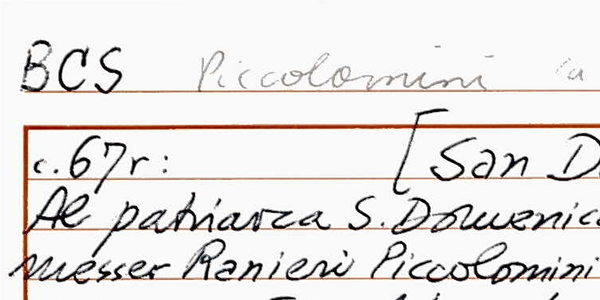 BCS Piccolomini
c.67r: [San D
Al patriarca S. Domenic
messer Ranieri Piccolomini